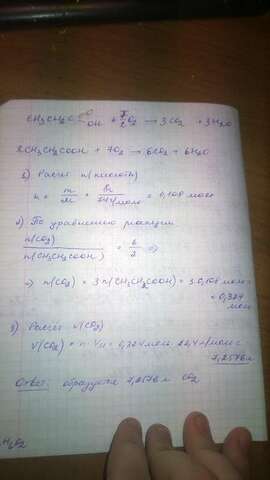 CH3CH2C O OH + 7/2 O2 → 3CO2 + 3H2O
2CH3CH2COOH + 7O2 → 6CO2 + 6H2O
1) Расчёт n(кислоты)
n = m/M = = 0,108 моль
2) По уравнению реакции
n(CO2)/n(CH3CH2COOH) = 6/2 ⇒
⇒ n(CO2) = 3n(CH3CH2COOH) = 3·0,108 моль =
= 0,324
моль
3) Расчёт V(CO2)
V(CO2) = n·Vm = 0,324 моль · 22,4 л/моль =
7,2576 л
Ответ: 7,2576 л CO2